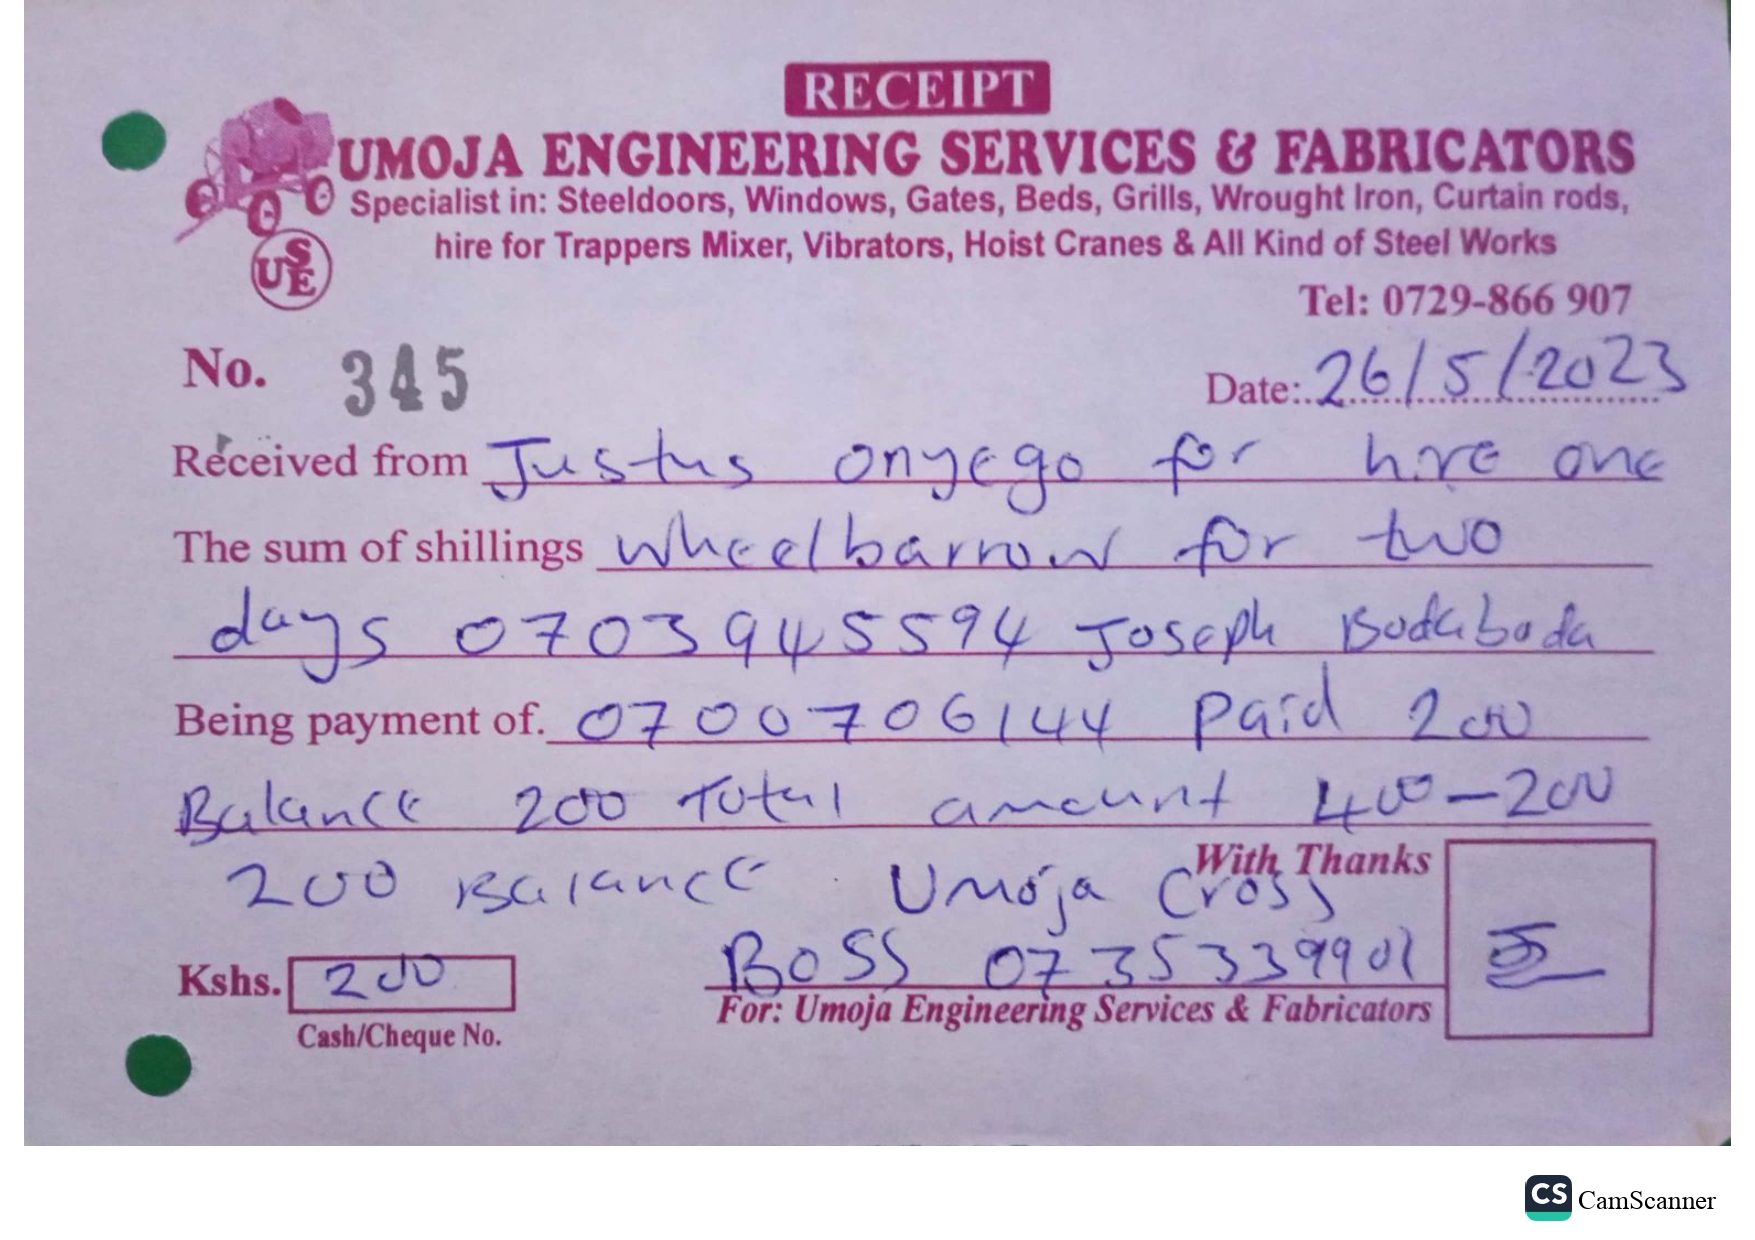 RECEIPT
UMOJA ENGINEERING SERVICES & FABRICATORS
Specialist in: Steeldoors, Windows, Gates, Beds, Grills, Wrought Iron, Curtain rods,
hire for Trappers Mixer, Vibrators, Hoist Cranes & All Kind of Steel Works
USE
Tel: 0729-866 907
No. 345
Date: 26/5/2023
Received from Justus onyego for hire one
The sum of shillings wheelbarrow for two
days 0703945594 Joseph Bodaboda
Being payment of. 0700706144 Paid 200
Balance 200 Total amount 400-200
With Thanks
200 Balance Umoja Cross
BOSS 0735339901
Kshs. 200
For: Umoja Engineering Services & Fabricators
Cash/Cheque No.
CS CamScanner